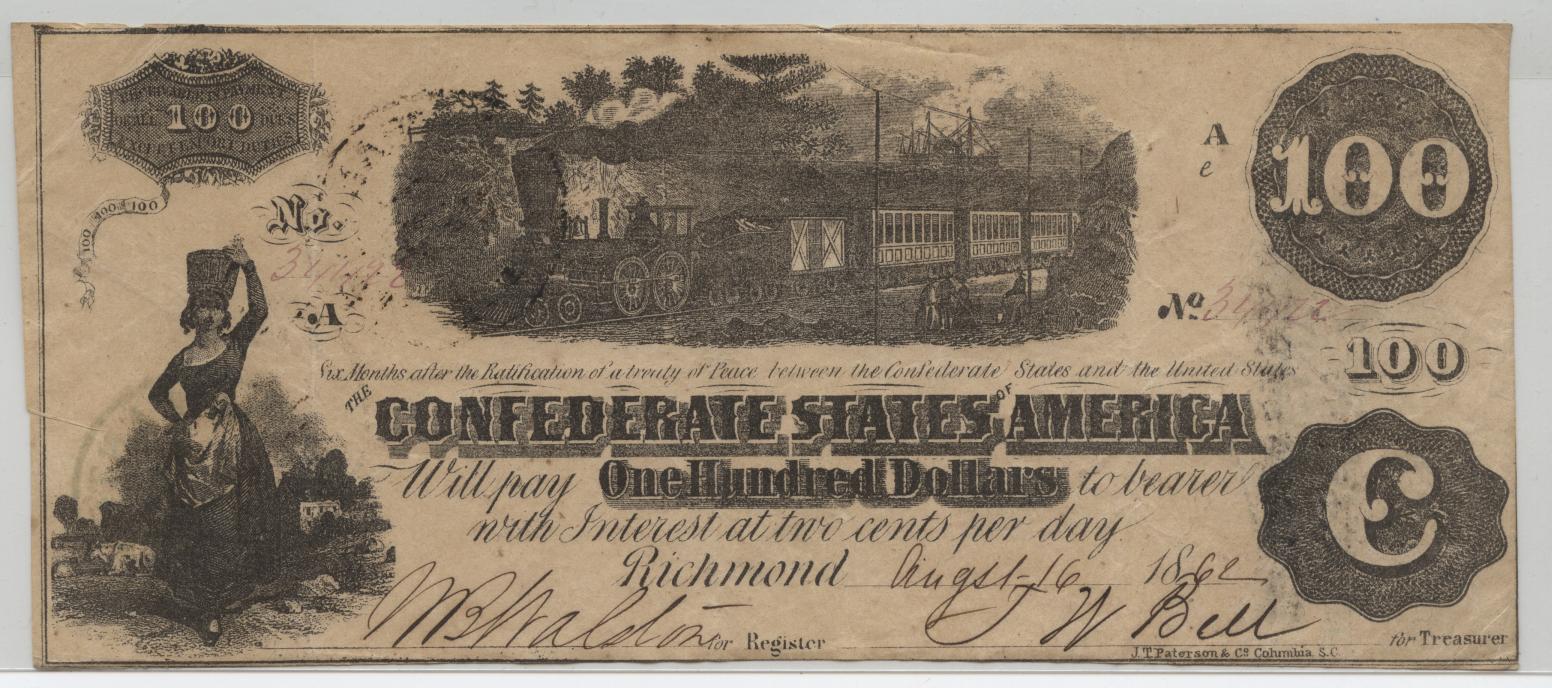 100
100 100 100
No.
A
A
e
100
No
100
Six Months after the Ratification of a treaty of Peace between the Confederate States and the United States
THE CONFEDERATE STATES OF AMERICA
Will pay One Hundred Dollars to bearer
with Interest at two cents per day
Richmond Augst 16 1862
C
for Register
J W Bell for Treasurer
J.T. Paterson & Co Columbia, S.C.